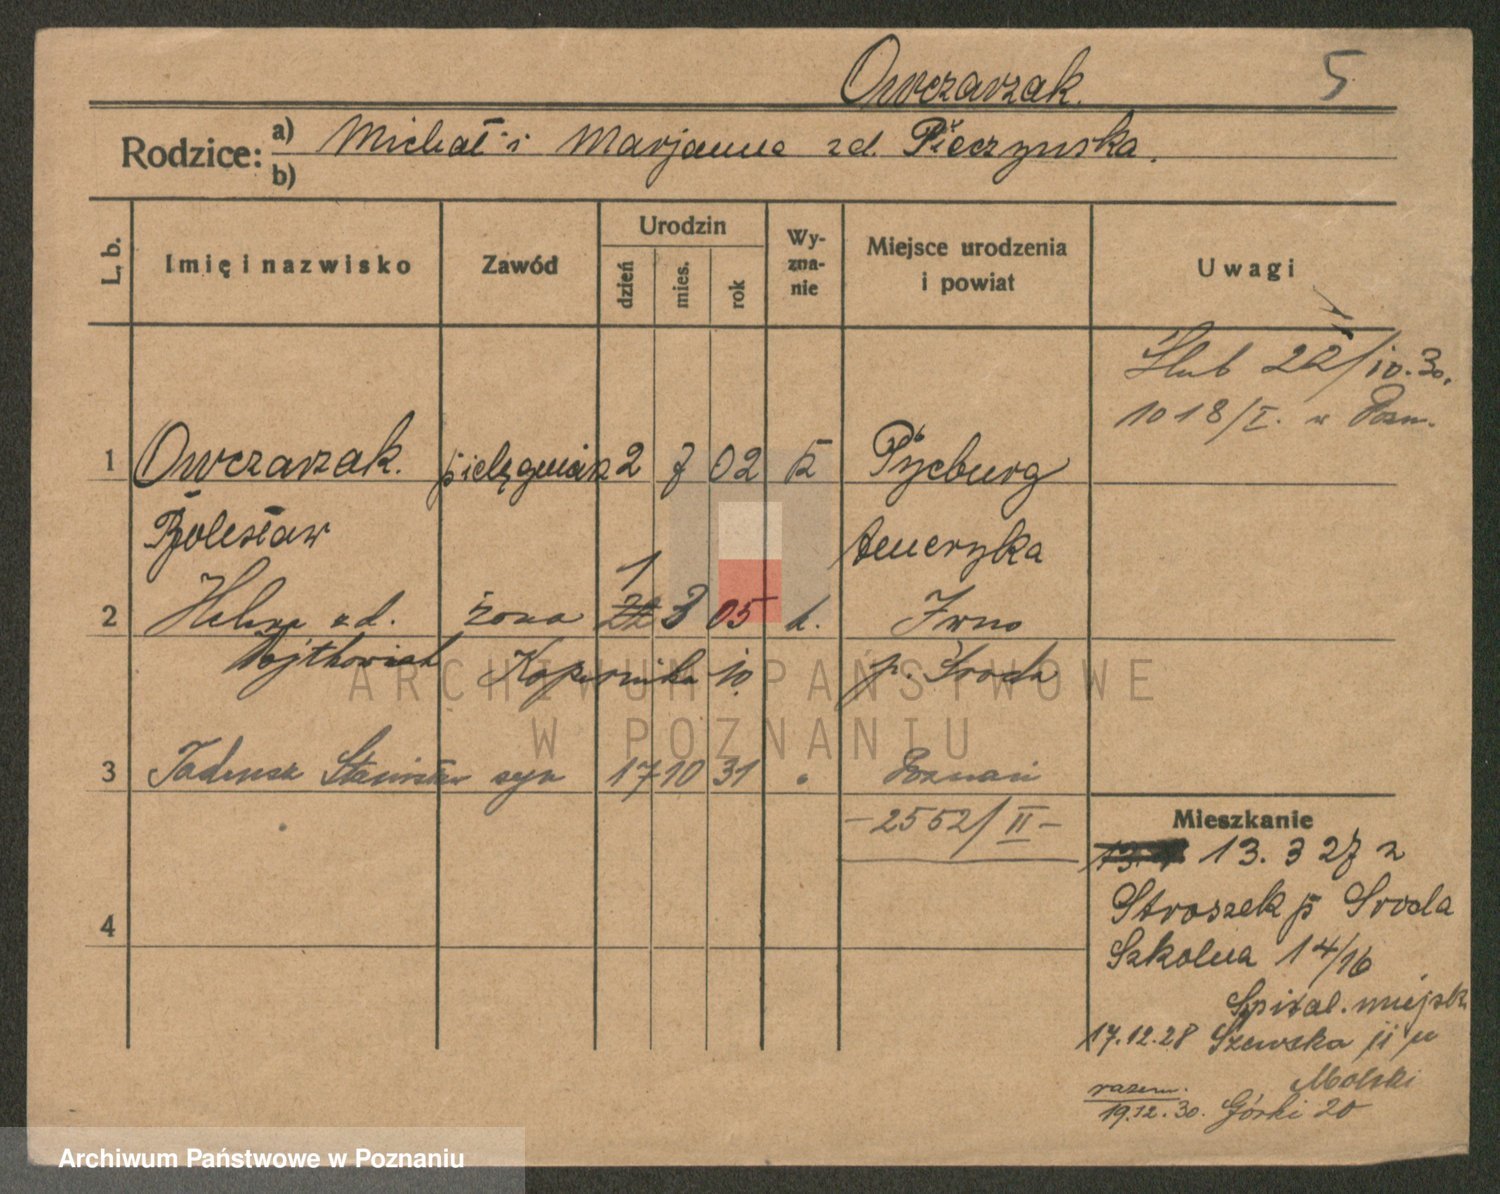 Owczarzak. 5
Rodzice: a) Michał i Marjanna zd. Pieczyńska.
b)
L. b. Imię i nazwisko Zawód Urodzin dzień mies. rok Wyznanie Miejsce urodzenia i powiat Uwagi
Ślub 22/10.30.
1018/I. w Pozn.
1 Owczarzak. pielęgniarz 2 7 02 k
Bolesław Ameryka
1
2 Helena zd. żona 22 3 05 k. Jrno
Wojtkowiak Kopernika 10. p. Środa
3 Tadeusz Stanisław syn 17 10 31 Poznań
-2552/II-
4
Mieszkanie
13. 3 27 z
Stroszek p Sroda
Szkolna 14/16
Szpital. miejsk
17.12.28 Szewska
Molski
razem.
19.12.30. Górki 20
ARCHIWUM PAŃSTWOWE
W POZNANIU
Archiwum Państwowe w Poznaniu